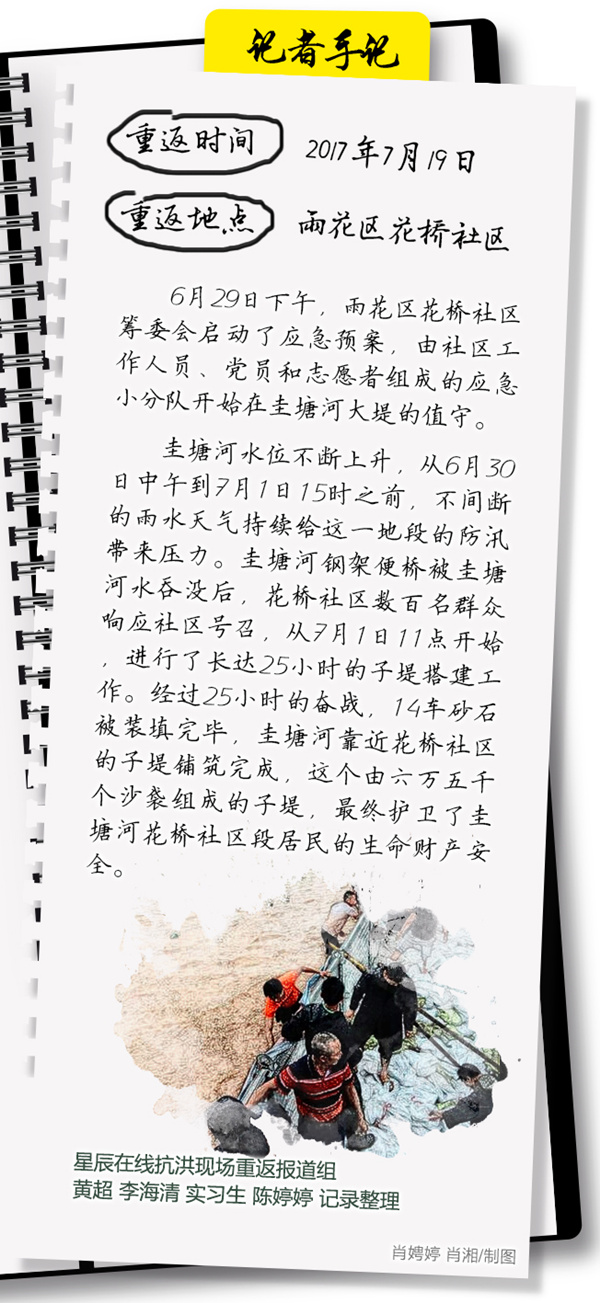 记者手记
重返时间 2017年7月19日
重返地点 雨花区花桥社区
6月29日下午，雨花区花桥社区
筹委会启动了应急预案，由社区工
作人员、党员和志愿者组成的应急
小分队开始在圭塘河大堤的值守。
圭塘河水位不断上升，从6月30
日中午到7月1日15时之前，不间断
的雨水天气持续给这一地段的防汛
带来压力。圭塘河钢架便桥被圭塘
河水吞没后，花桥社区数百名群众
响应社区号召，从7月1日11点开始
，进行了长达25小时的子堤搭建工
作。经过25小时的奋战，14车砂石
被装填完毕，圭塘河靠近花桥社区
的子堤铺筑完成，这个由六万五千
个沙袋组成的子堤，最终护卫了圭
塘河花桥社区段居民的生命财产安
全。
星辰在线抗洪现场重返报道组
黄超 李海清 实习生 陈婷婷 记录整理
肖娉婷 肖湘/制图